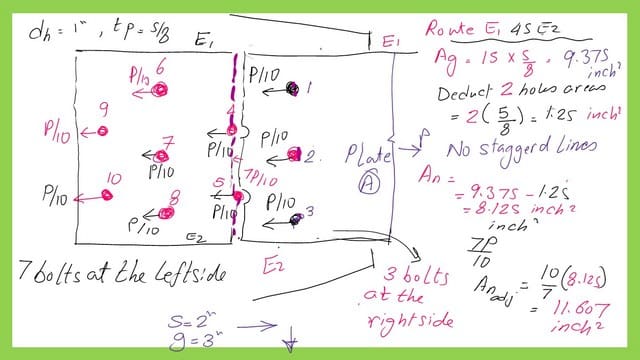 dh=1", tp=5/8
E1
E1
Route E1 4 5 E2
Ag = 15 x 5/8 = 9.375 inch²
Deduct 2 holes areas
= 2(5/8) = 1.25 inch²
No staggerd lines
An =
= 9.375 - 1.25
= 8.125 inch²
inch²
7P/10
An adj = 10/7 (8.125)
= 11.607 inch²
P/10
6
P/10
1
9
P/10
4
P/10
7
P/10
P/10
2
7P/10
Plate
A
P
10
P/10
8
P/10
5
P/10
P/10
3
E2
E2
7 bolts at the leftside
3 bolts
at the
rightside
S=2"
g=3"